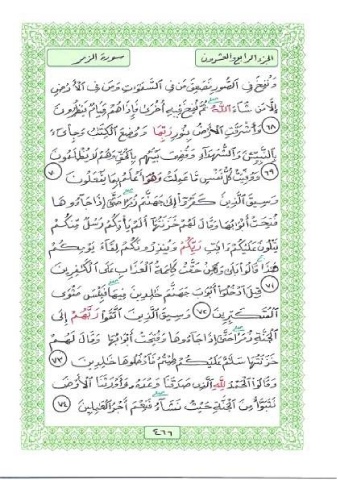 الجزء الرابع والعشرون
سورة الزمر
وَنُفِخَ فِي ٱلصُّورِ فَصَعِقَ مَن فِي ٱلسَّمَٰوَٰتِ وَمَن فِي ٱلْأَرْضِ
إِلَّا مَن شَآءَ ٱللَّهُ ثُمَّ نُفِخَ فِيهِ أُخْرَىٰ فَإِذَا هُمْ قِيَامٌ يَنظُرُونَ
٦٨ وَأَشْرَقَتِ ٱلْأَرْضُ بِنُورِ رَبِّهَا وَوُضِعَ ٱلْكِتَٰبُ وَجِا۟ىٓءَ
بِٱلنَّبِيِّۦنَ وَٱلشُّهَدَآءِ وَقُضِيَ بَيْنَهُم بِٱلْحَقِّ وَهُمْ لَا يُظْلَمُونَ
٦٩ وَوُفِّيَتْ كُلُّ نَفْسٍ مَّا عَمِلَتْ وَهُوَ أَعْلَمُ بِمَا يَفْعَلُونَ ٧٠
وَسِيقَ ٱلَّذِينَ كَفَرُوٓا۟ إِلَىٰ جَهَنَّمَ زُمَرًا حَتَّىٰٓ إِذَا جَآءُوهَا
فُتِحَتْ أَبْوَٰبُهَا وَقَالَ لَهُمْ خَزَنَتُهَآ أَلَمْ يَأْتِكُمْ رُسُلٌ مِّنكُمْ
يَتْلُونَ عَلَيْكُمْ ءَايَٰتِ رَبِّكُمْ وَيُنذِرُونَكُمْ لِقَآءَ يَوْمِكُمْ
هَٰذَا قَالُوا۟ بَلَىٰ وَلَٰكِنْ حَقَّتْ كَلِمَةُ ٱلْعَذَابِ عَلَى ٱلْكَٰفِرِينَ
٧١ قِيلَ ٱدْخُلُوٓا۟ أَبْوَٰبَ جَهَنَّمَ خَٰلِدِينَ فِيهَا فَبِئْسَ مَثْوَى
ٱلْمُتَكَبِّرِينَ ٧٢ وَسِيقَ ٱلَّذِينَ ٱتَّقَوْا۟ رَبَّهُمْ إِلَى
ٱلْجَنَّةِ زُمَرًا حَتَّىٰٓ إِذَا جَآءُوهَا وَفُتِحَتْ أَبْوَٰبُهَا وَقَالَ لَهُمْ
خَزَنَتُهَا سَلَٰمٌ عَلَيْكُمْ طِبْتُمْ فَٱدْخُلُوهَا خَٰلِدِينَ ٧٣
وَقَالُوا۟ ٱلْحَمْدُ لِلَّهِ ٱلَّذِي صَدَقَنَا وَعْدَهُۥ وَأَوْرَثَنَا ٱلْأَرْضَ
نَتَبَوَّأُ مِنَ ٱلْجَنَّةِ حَيْثُ نَشَآءُ فَنِعْمَ أَجْرُ ٱلْعَٰمِلِينَ ٧٤
٤٦٦